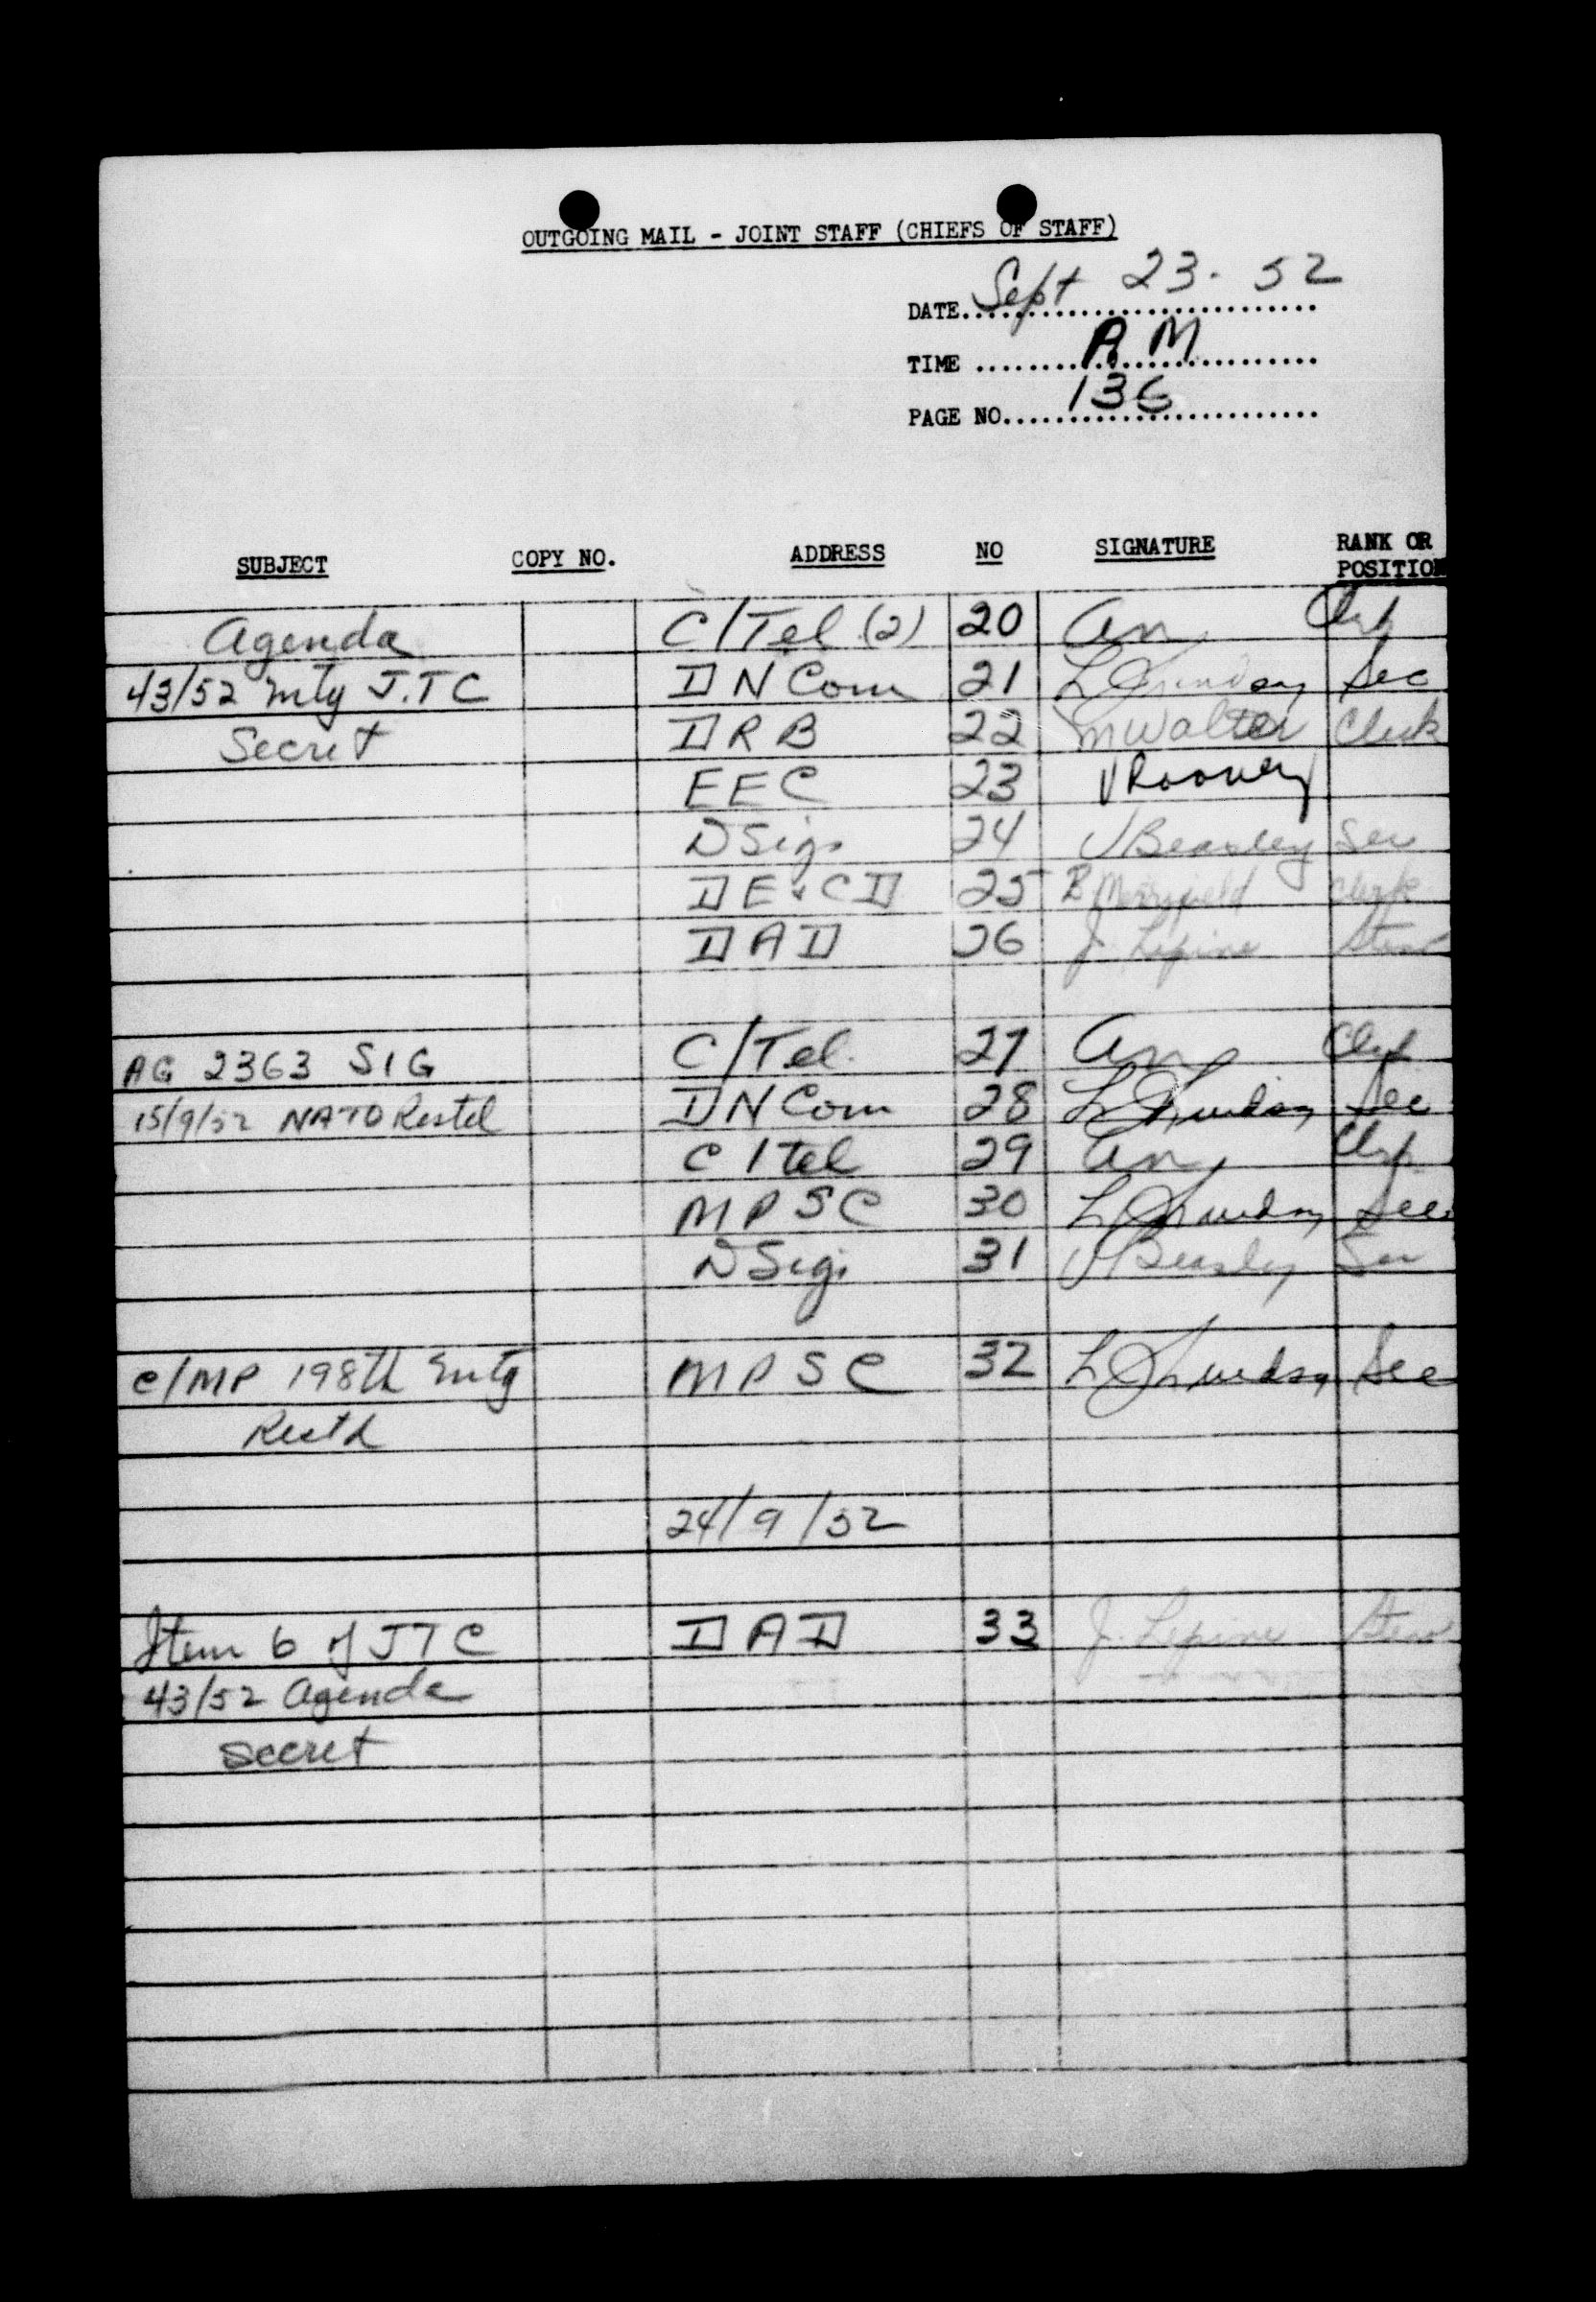 OUTGOING MAIL - JOINT STAFF (CHIEFS OF STAFF)
DATE Sept 23. 52
TIME A.M
PAGE NO. 136
SUBJECT COPY NO. ADDRESS NO SIGNATURE RANK OR POSITION
Agenda C/Tel (2) 20
43/52 mtg J.T C DN Com 21 Sec
Secret DRB 22 M Walter Clerk
EEC 23 V Rooney
DSigs 24 V Beasley Sec
DE & CD 25 B Merryfield Clerk
DAD 26 J. Lepine Steno
AG 2363 SIG C/Tel. 27
15/9/52 NATO Restd DN Com 28 Sec
C/Tel 29
MPSC 30 Sec
DSigs 31 V Beasley Sec
C/MP 198th mtg MPSC 32 Sec
Restd
24/9/52
Item 6 of JTC DAD 33 J. Lepine Steno
43/52 Agenda
Secret